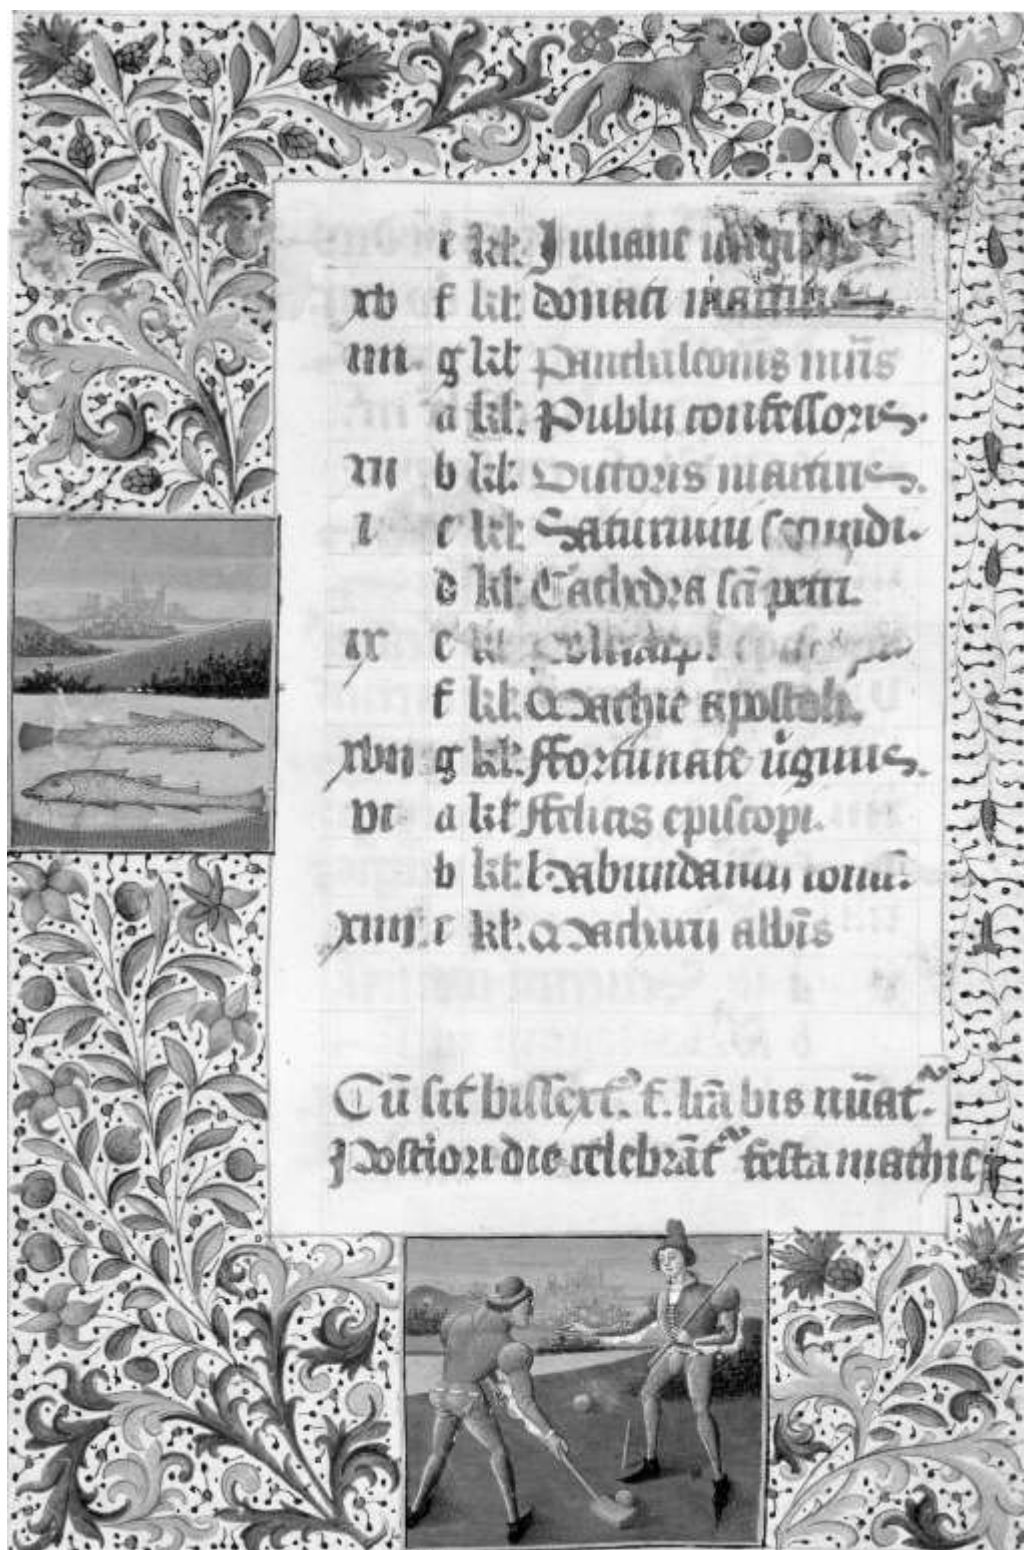 e kł. Juliane uirginis
xv f kł. Donati martiris.
iiii. g kł Panthaleonis mr̄is
a kł. Publii confessoris.
xii b kł. Victoris martiris.
i c kł. Saturnini secundi.
d kł. Cathedra scī petri.
ix e kł.
f kł. Mathie apostoli.
xvii g kł. ffortunate ūginis.
vi a kł ffelicis episcopi.
b kł. habundancii
xiiii. c kł. Machuti albīs
Cū sit bissext. f. lrā bis nūat.
Posteriori die celebrāt festa mathie